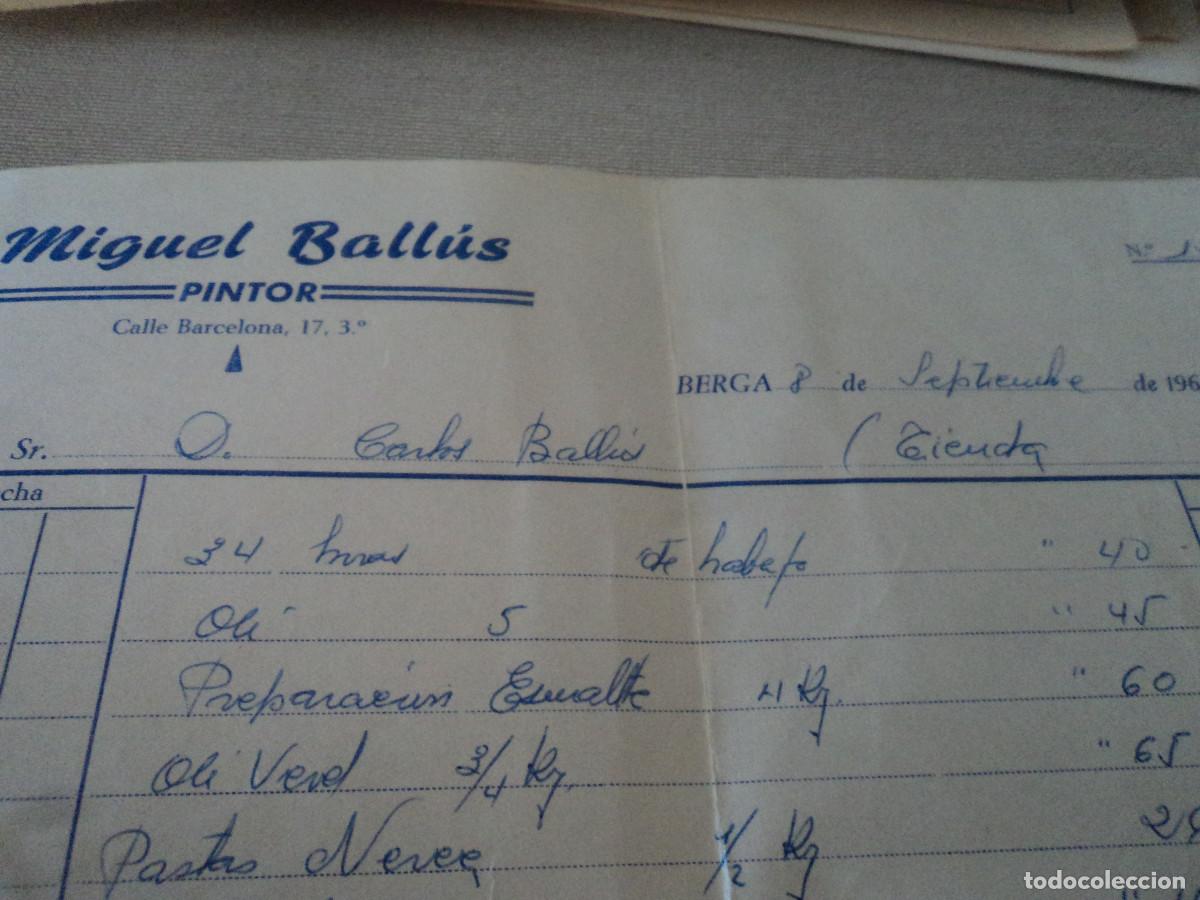 Miguel Ballús
PINTOR
Calle Barcelona, 17, 3.º
N.º
BERGA 8 de Septiembre de 196
Sr. D. Carlos Ballús (Tienda
cha
34 horas de trabajo " 40
Oli 5 " 45
Preparación Esmalte 4 Kg. " 60
Oli Verd 3/4 Kg. " 65
Pastas 1/2 Kg
todocoleccion